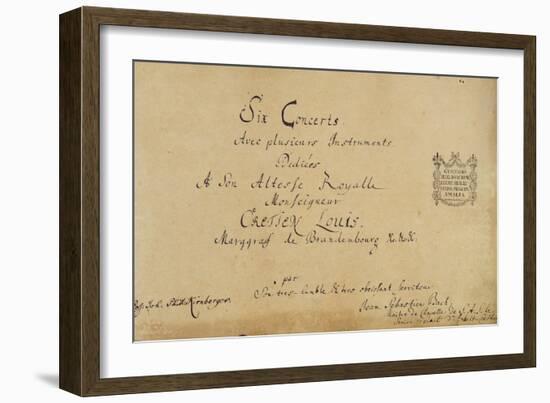 Six Concerts
Avec plusieurs Instruments
Dediées
A Son Altesse Royalle
Monseigneur
Cretien Louis.
Marggraf de Brandenbourg &c. &c. &c.
par
Son tres humble & tres obeissant Serviteur
Jean Sebastien Bach,
Maitre de Chapelle de S. A. S. le
Kirnberger
AMALIA